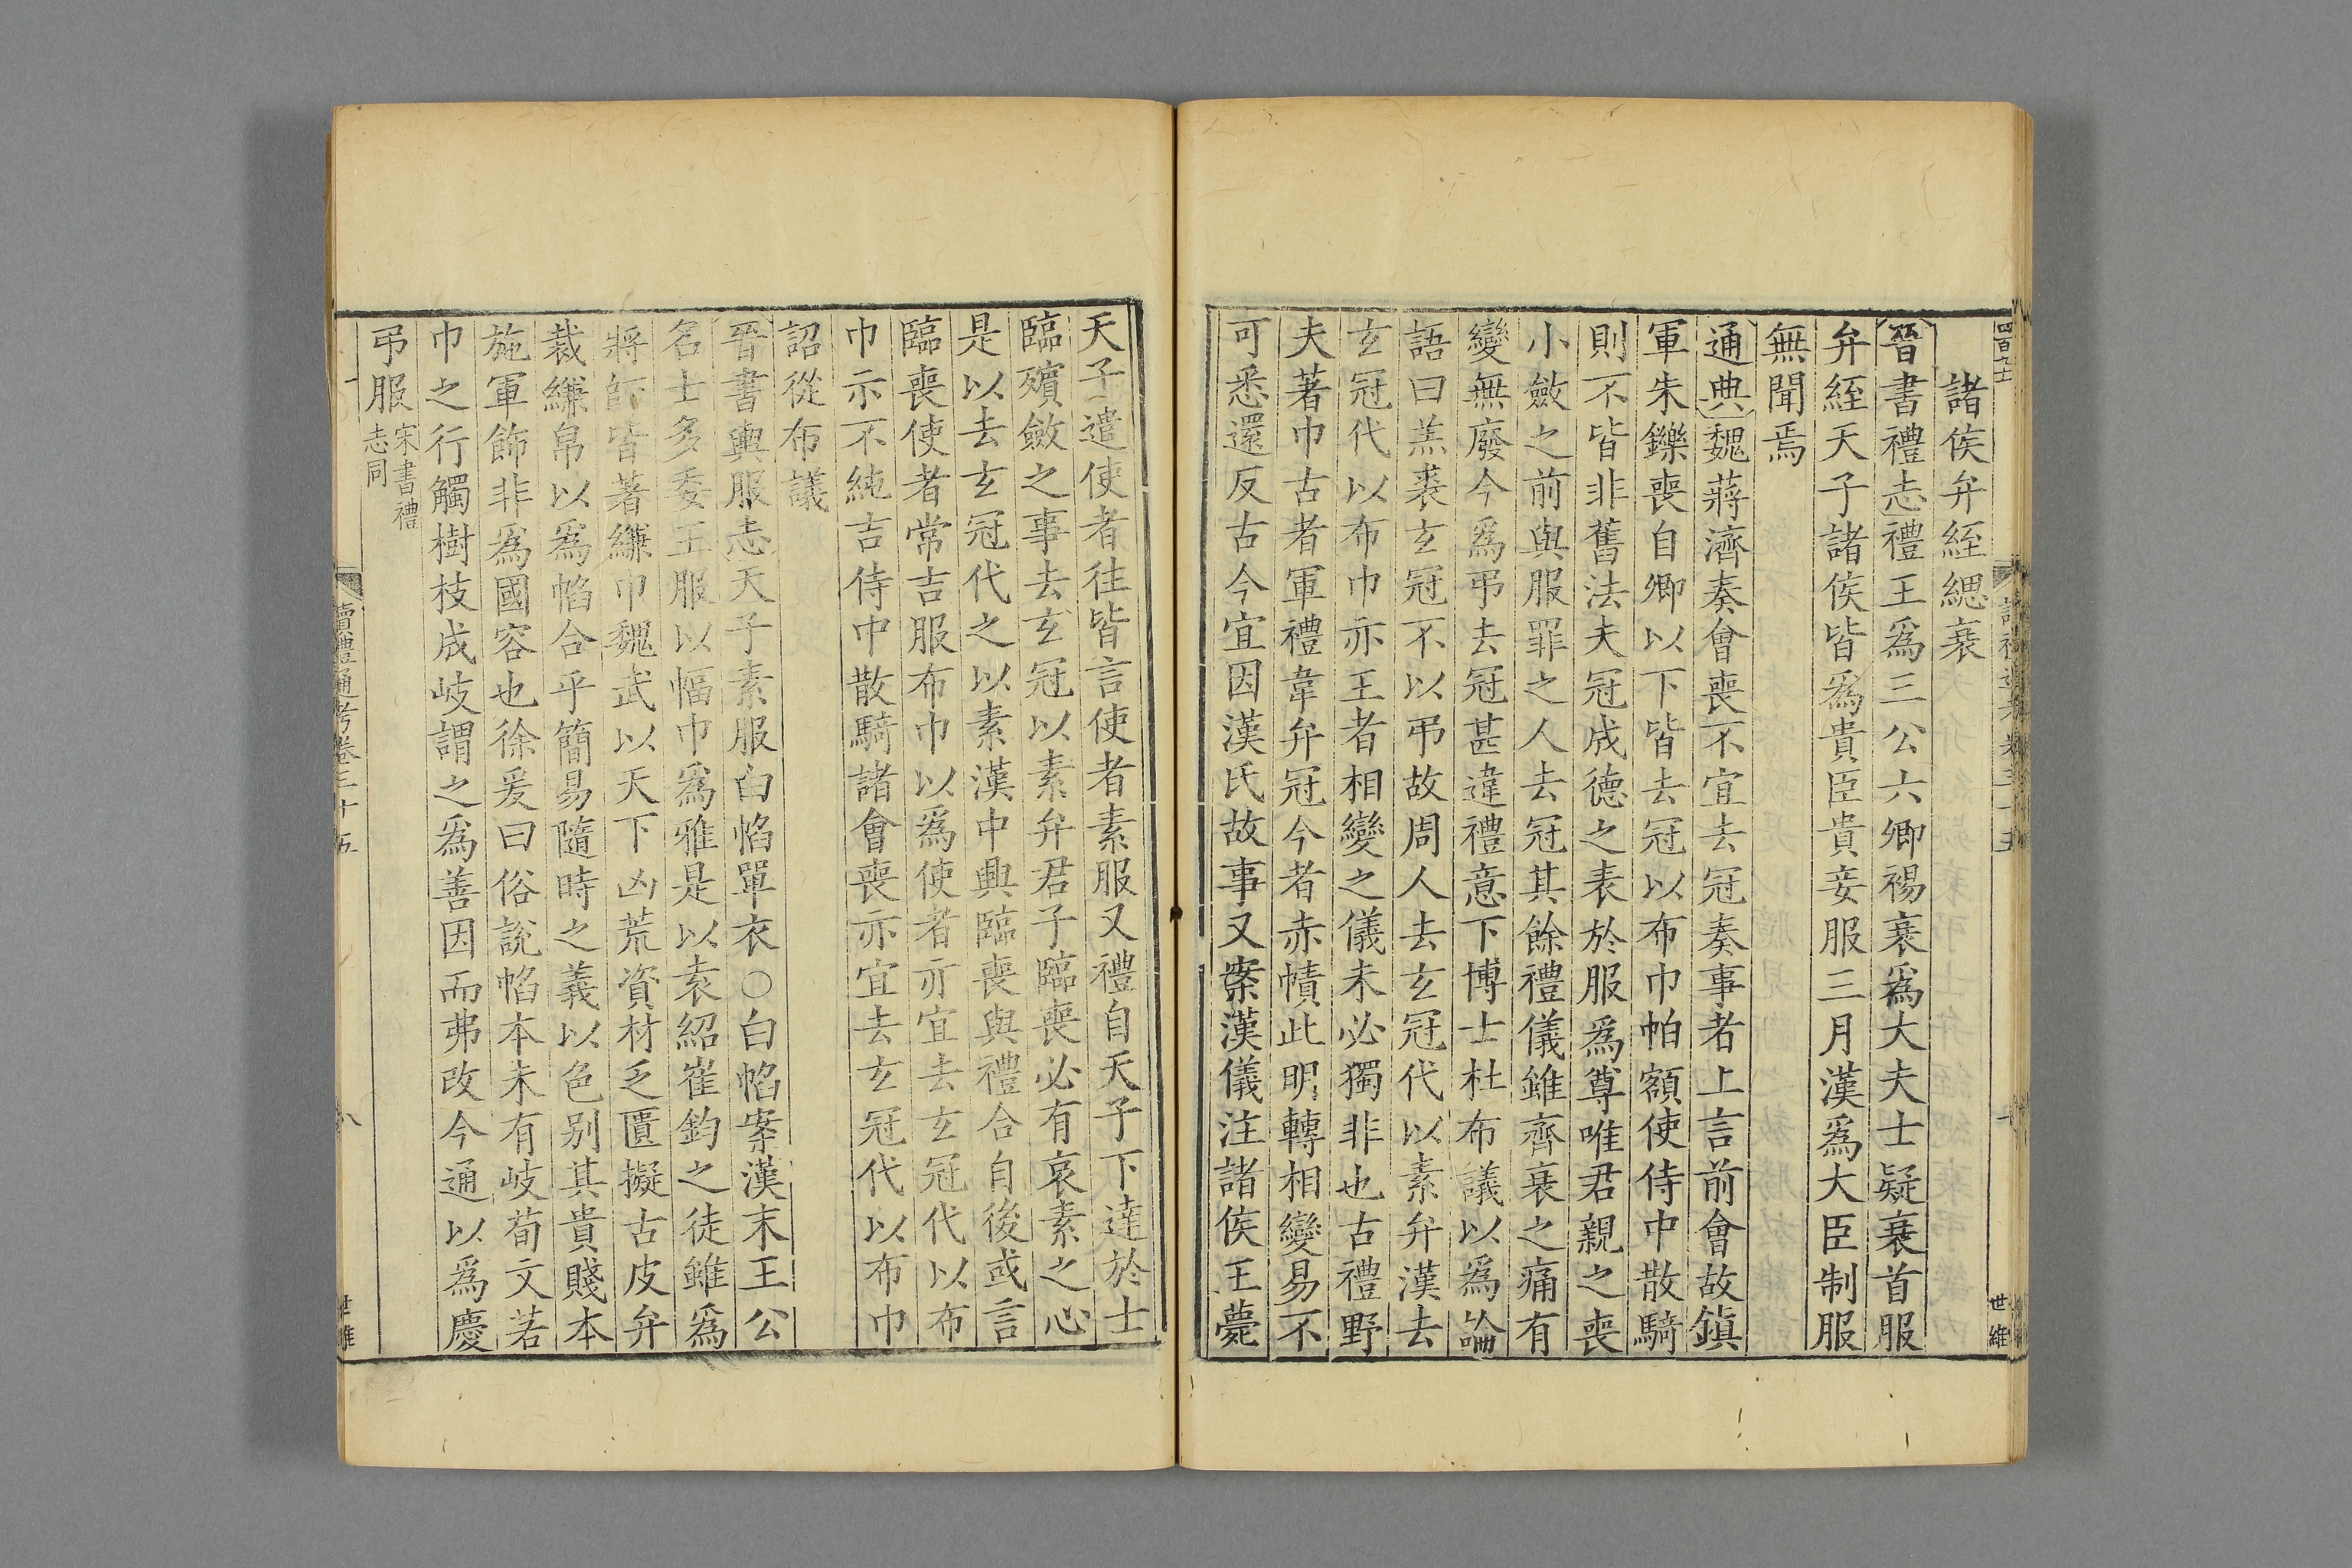 諸侯弁絰緦衰
晉書禮志禮王爲三公六卿裼衰爲大夫士疑衰首服
弁絰天子諸侯皆爲貴臣貴妾服三月漢爲大臣制服
無聞焉
通典魏蔣濟奏會喪不宜去冠奏事者上言前會故鎭
軍朱鑠喪自卿以下皆去冠以布巾帕額使侍中散騎
則不皆非舊法夫冠成德之表於服爲尊唯君親之喪
小斂之前與服罪之人去冠其餘禮儀雖齊衰之痛有
變無廢今爲弔去冠甚違禮意下博士杜布議以爲論
語曰羔裘玄冠不以弔故周人去玄冠代以素弁漢去
玄冠代以布巾亦王者相變之儀未必獨非也古禮野
夫著巾古者軍禮韋弁冠今者赤幘此明轉相變易不
可悉還反古今宜因漢氏故事又案漢儀注諸侯王薨
天子遣使者往皆言使者素服又禮自天子下達於士
臨殯斂之事去玄冠以素弁君子臨喪必有哀素之心
是以去玄冠代之以素漢中興臨喪與禮合自後或言
臨喪使者常吉服布巾以爲使者亦宜去玄冠代以布
巾示不純吉侍中散騎諸會喪亦宜去玄冠代以布巾
詔從布議
晉書輿服志天子素服白帢單衣○白帢案漢末王公
名士多委王服以幅巾爲雅是以袁紹崔鈞之徒雖爲
將帥皆著縑巾魏武以天下凶荒資材乏匱擬古皮弁
裁縑帛以爲帢合乎簡易隨時之義以色别其貴賤本
施軍飾非爲國容也徐爰曰俗說帢本未有岐荀文若
巾之行觸樹枝成岐謂之爲善因而弗改今通以爲慶
弔服宋書禮
志同
讀禮通考卷三十五
八